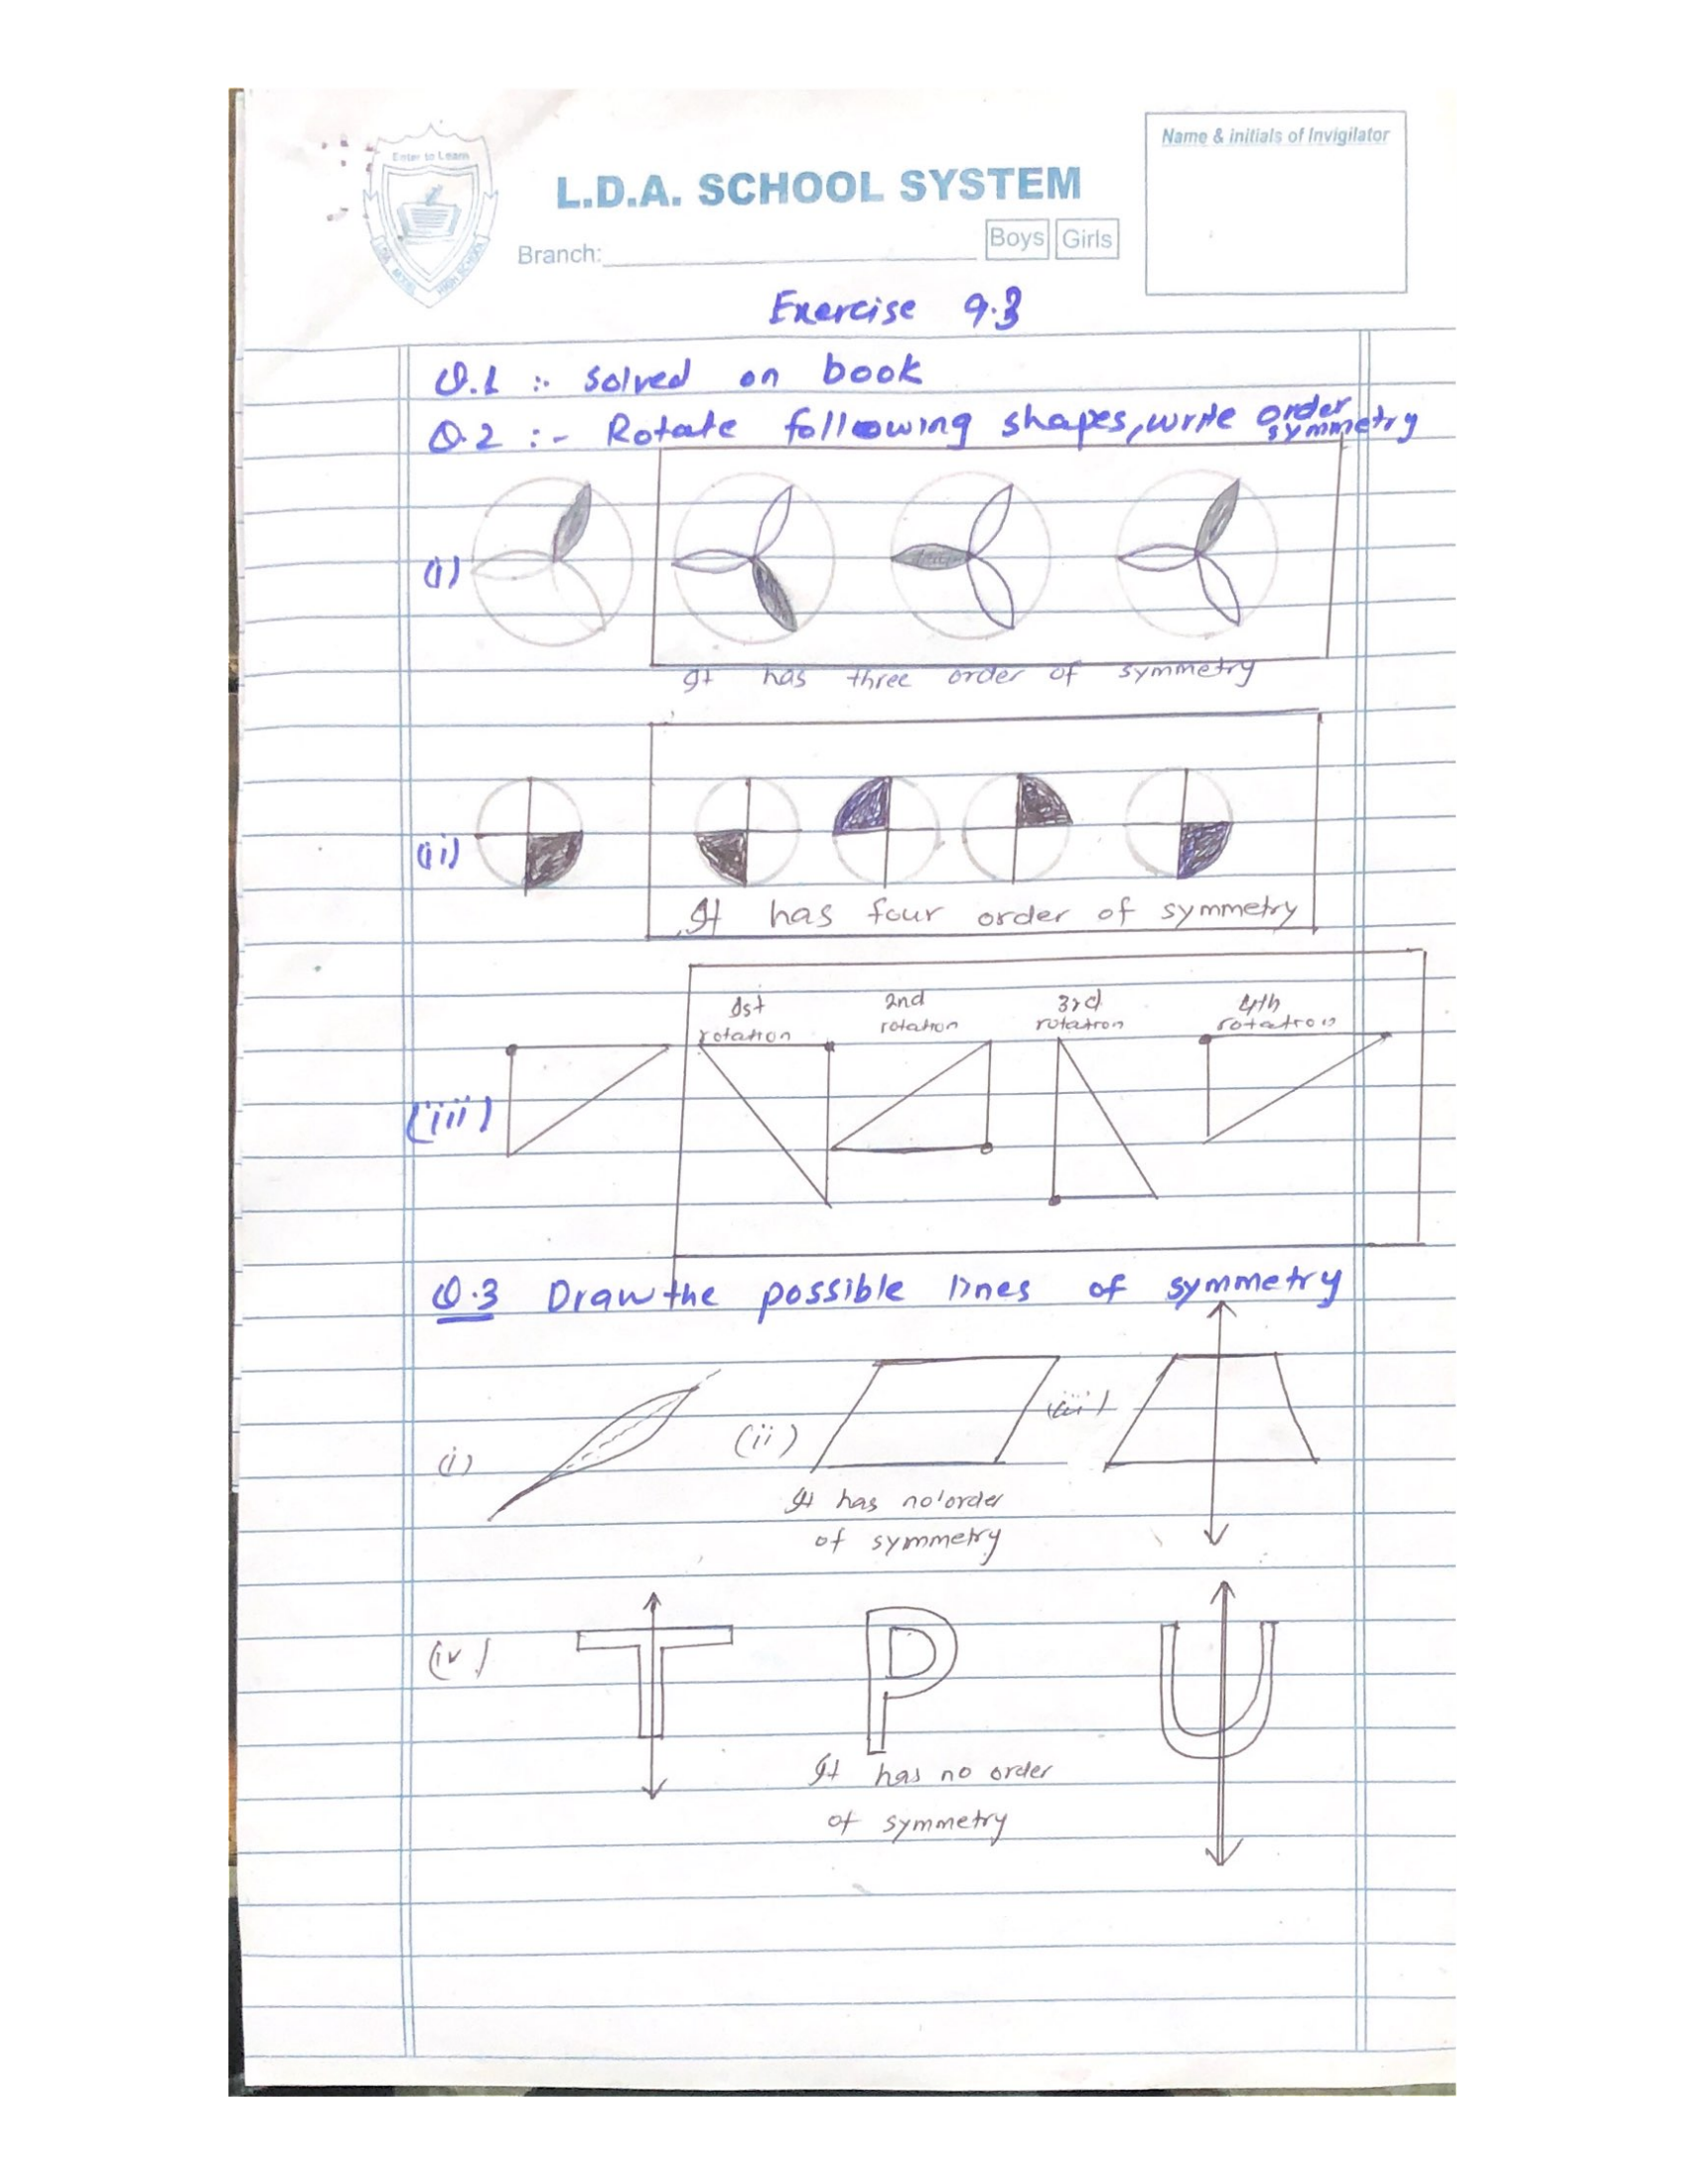 Enter to Learn
L.D.A. SCHOOL SYSTEM
Name & initials of Invigilator
Branch:
Boys Girls
HIGH SCHOOL
Exercise 9.3
Q.1 :- solved on book
Q.2 :- Rotate following shapes, write order symmetry
(i)
It has three order of symmetry
(ii)
It has four order of symmetry
1st rotation
2nd rotation
3rd rotation
4th rotation
(iii)
Q.3 Draw the possible lines of symmetry
(i)
(ii)
(iii)
It has no order
of symmetry
(iv)
T P U
It has no order
of symmetry